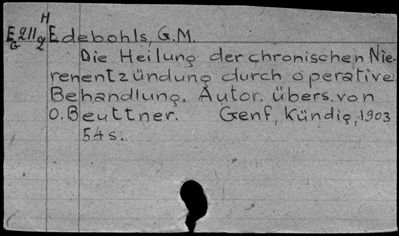 H
E 211 Edebohls, G.M.
G 2
Die Heilung der chronischen Nie-
renentzündung durch operative
Behandlung. Autor. übers. von
O. Beuttner. Genf, Kündig, 1903
54 s.